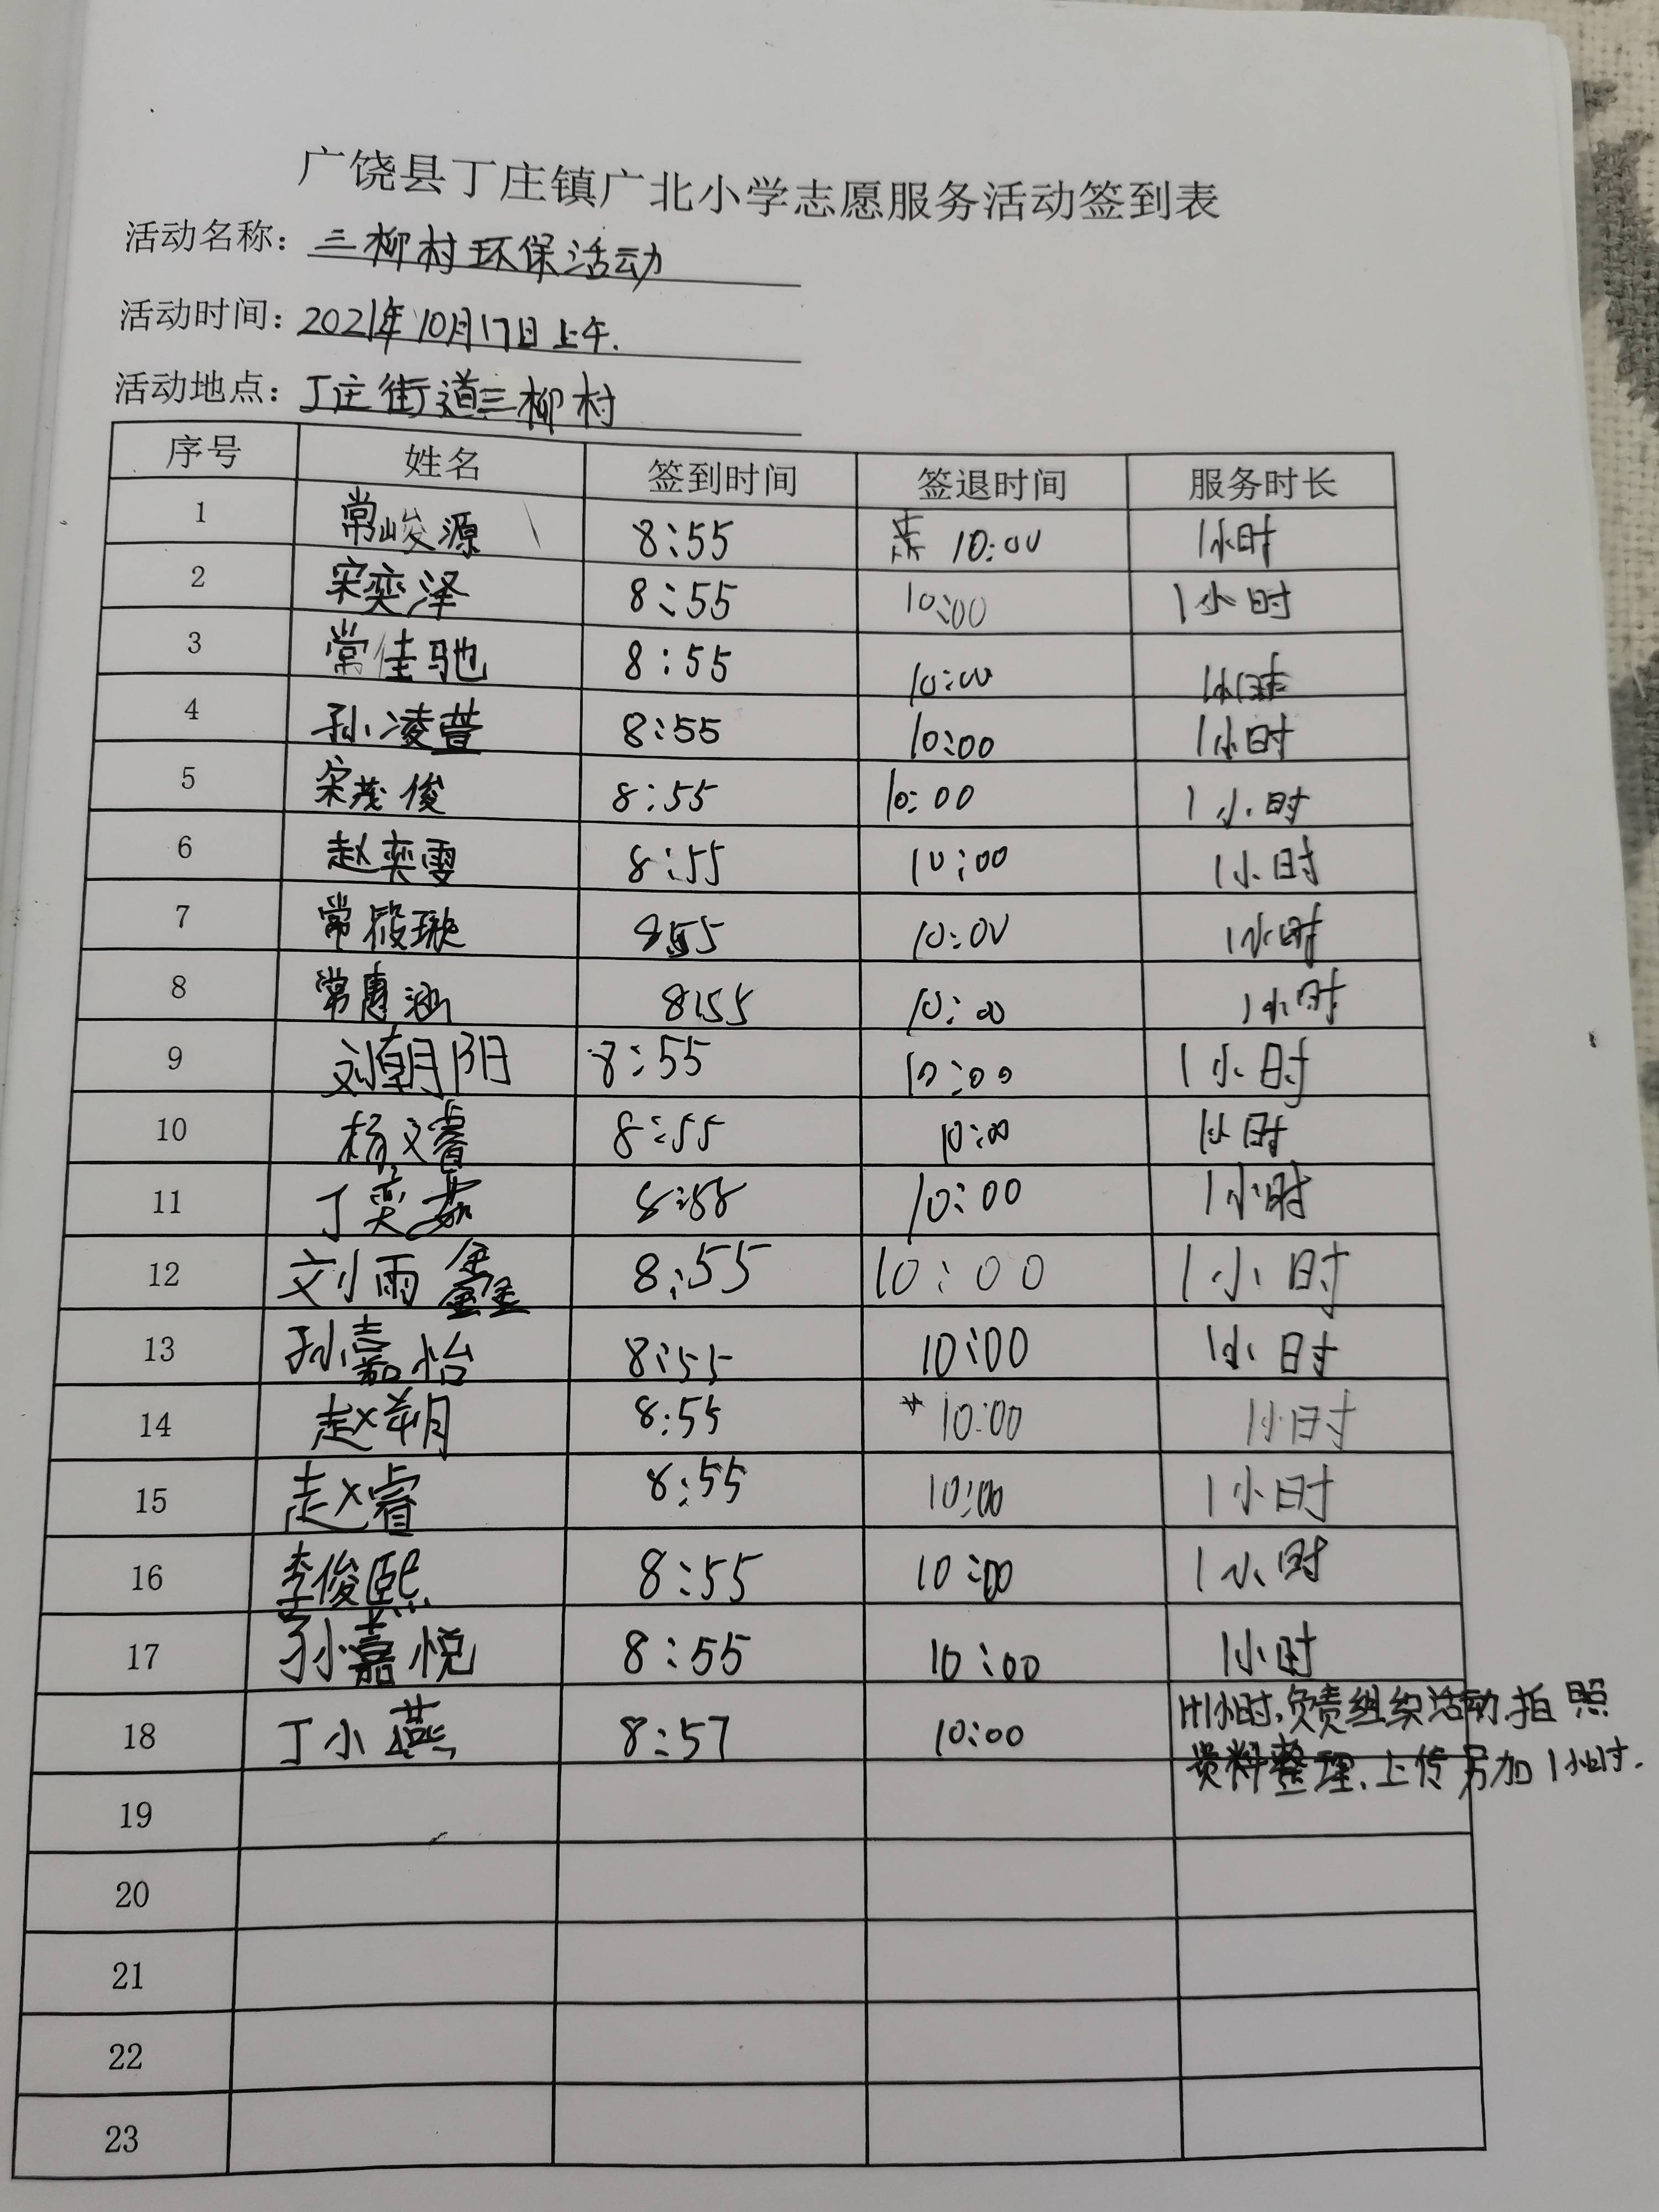 广饶县丁庄镇广北小学志愿服务活动签到表
活动名称：三柳村环保活动
活动时间：2021年10月17日上午.
活动地点：丁庄街道三柳村
序号 姓名 签到时间 签退时间 服务时长
1 常峻源 8:55 10:00 1小时
2 宋奕泽 8:55 10:00 1小时
3 常佳驰 8:55 10:00 1小时
4 孙凌萱 8:55 10:00 1小时
5 宋茂俊 8:55 10:00 1小时
6 赵奕雯 8:55 10:00 1小时
7 常筱璇 8:55 10:00 1小时
8 常惠涵 8:55 10:00 1小时
9 刘朝阳 8:55 10:00 1小时
10 杨文睿 8:55 10:00 1小时
11 丁奕茹 10:00 1小时
12 刘雨鑫 8:55 10:00 1小时
13 孙嘉怡 8:55 10:00 1小时
14 赵朔 8:55 10:00 1小时
15 赵睿 8:55 10:00 1小时
16 李俊熙 8:55 10:00 1小时
17 孙嘉悦 8:55 10:00 1小时
18 丁小燕 8:57 10:00 1+1小时,负责组织活动.拍照
资料整理、上传另加1小时.
19
20
21
22
23